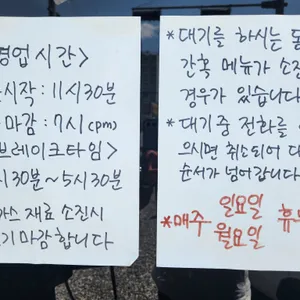 영업시간>
시작: 11시 30분
마감: 7시 (pm)
브레이크타임>
시 30분 ~ 5시 30분
재료 소진시
기마감합니다
* 대기를 하시는
간혹 메뉴가 소
경우가 있습니다
* 대기 중 전화를
으시면 취소되어
순서가 넘어갑니다
일요일
*매주 휴
월요일